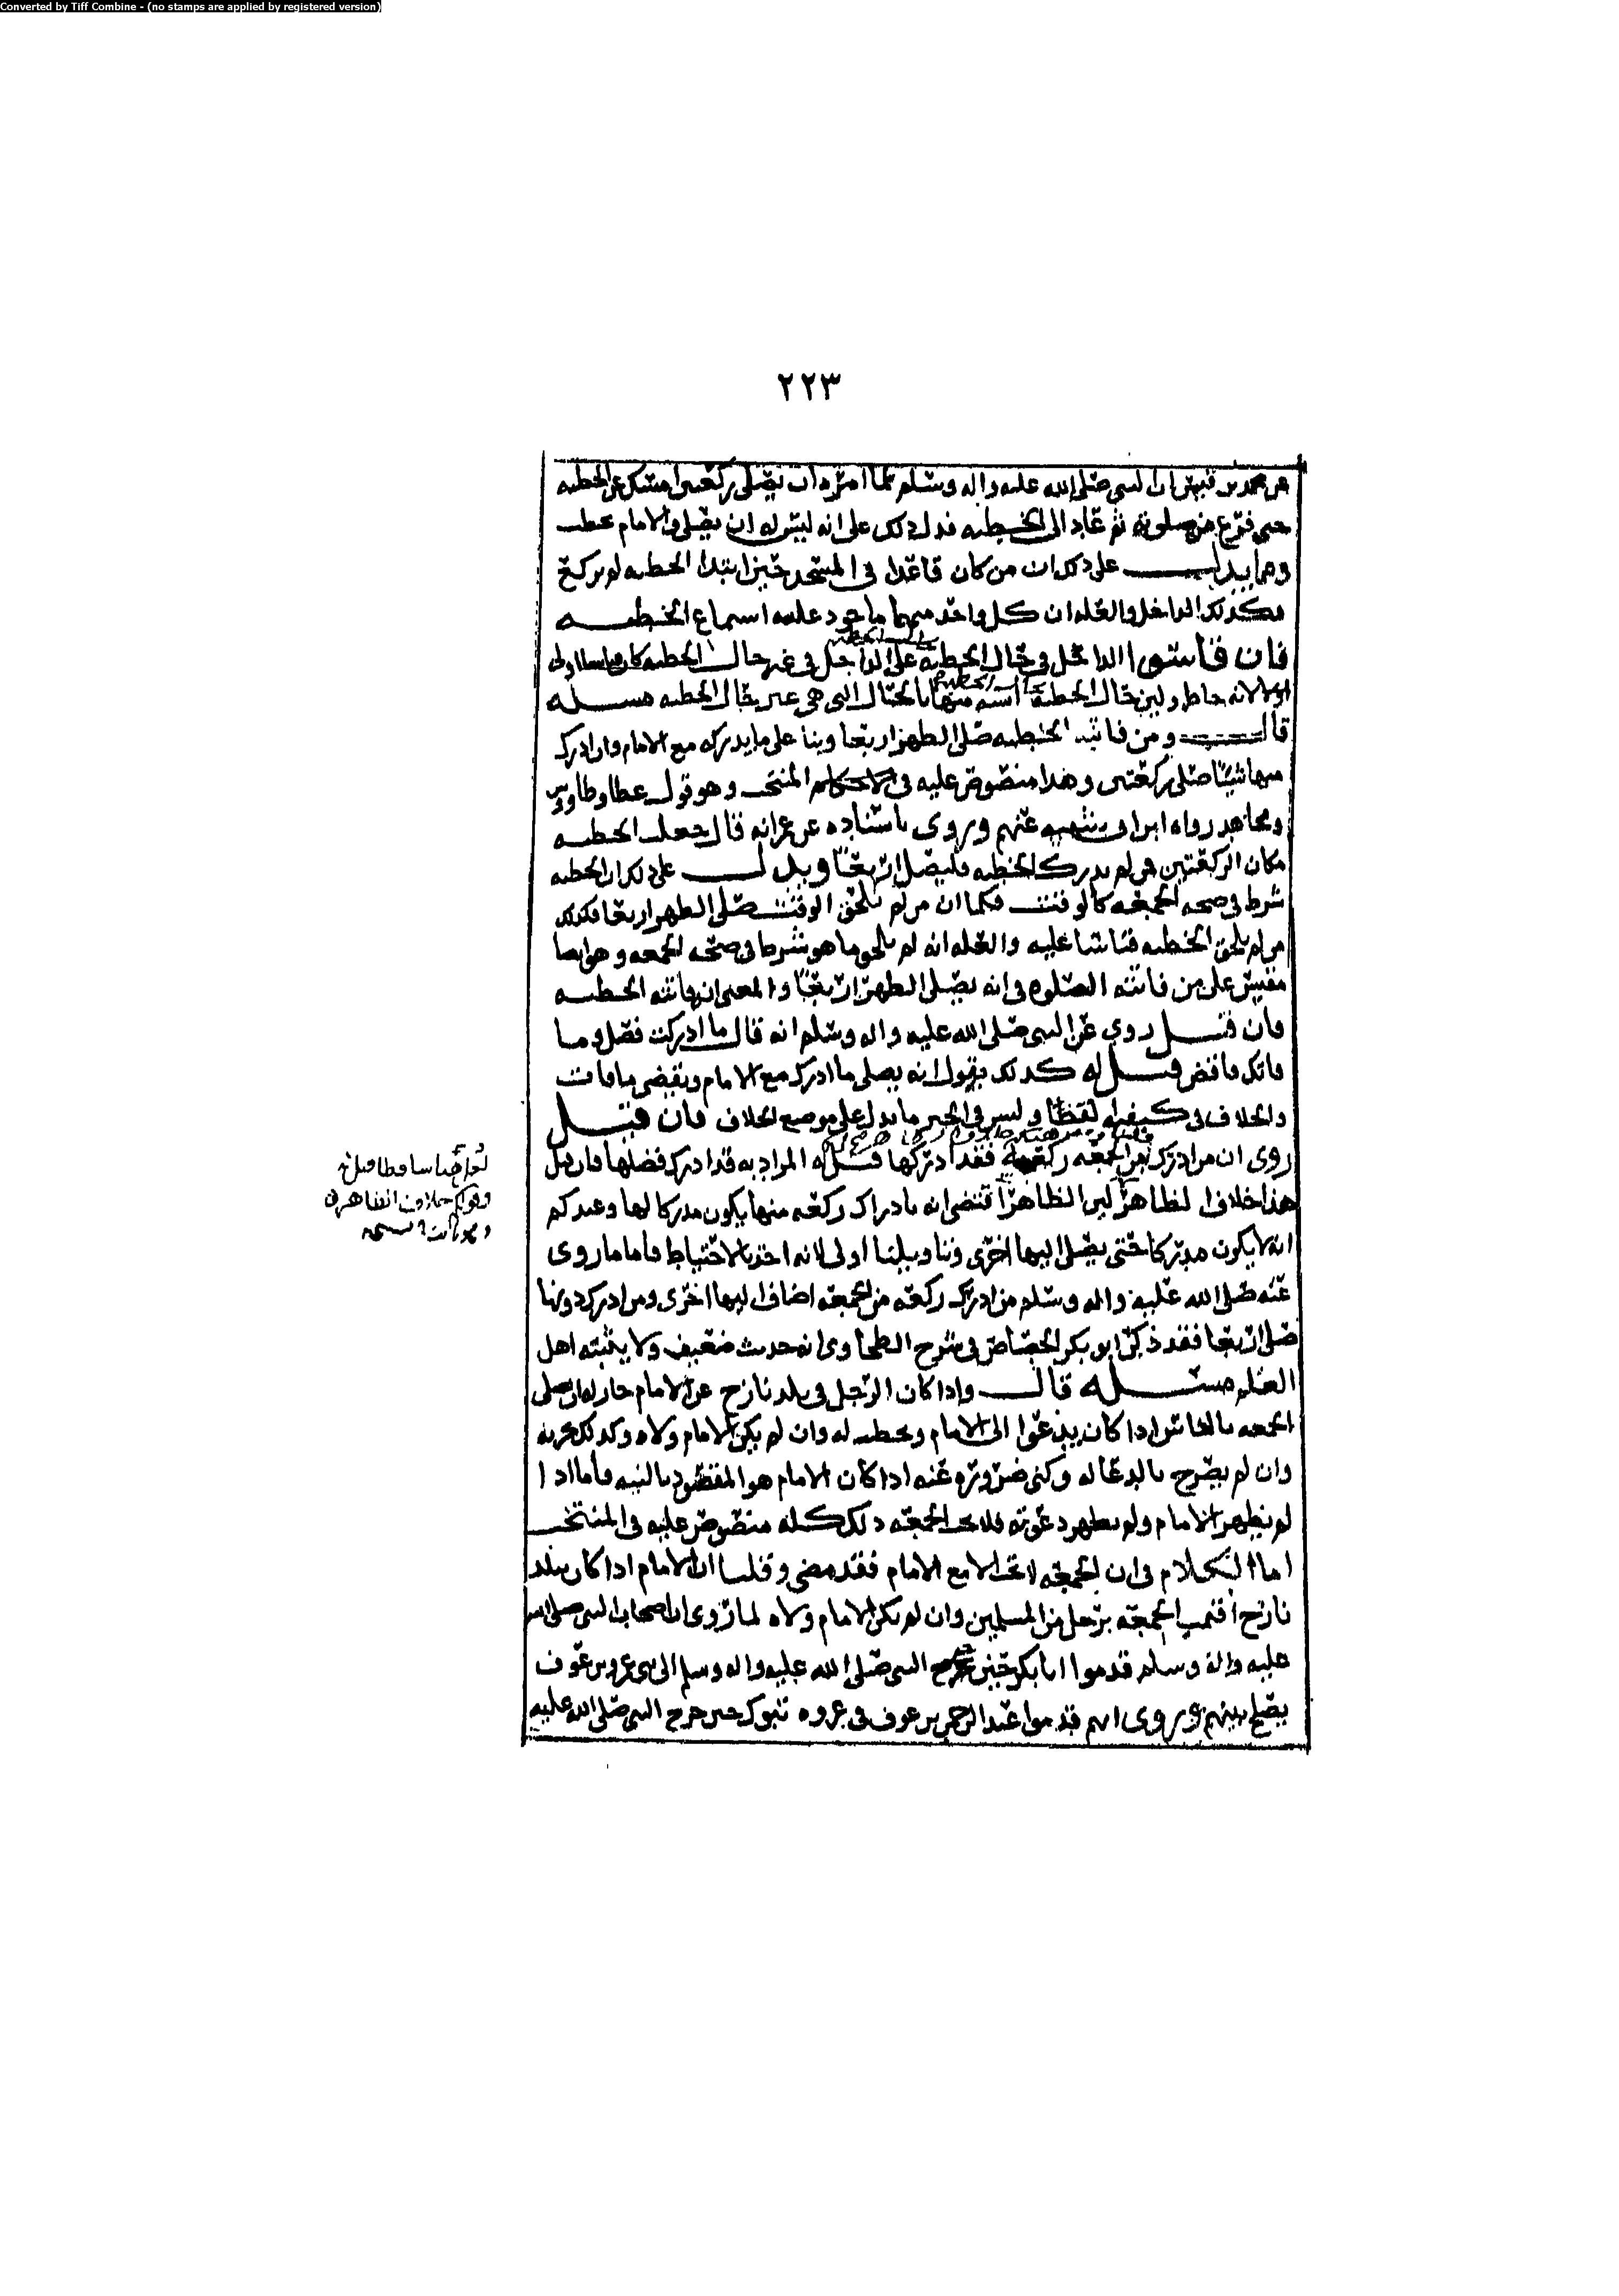 Converted by Tiff Combine - (no stamps are applied by registered version)
٢٢٣
عن محمد بن قيس ان النبي صلى الله عليه واله وسلم لما امره ان يصلي ركعتين امسك عن الخطبه
حتى فرغ من صلوته ثم عاد الى الخطبه فدل ذلك على انه ليس له ان يصلي والامام يخطب
ومما يدل على ذلك ان من كان قاعدا في المسجد حين ابتدا الخطبه لم يركع
فكذلك الداخل والعله ان كل واحد منهما ماخوذ عليه استماع الخطبه
فان قاسوا الداخل في حال الخطبه على الداخل في غير حال الخطبه كان قياسنا اولى
لانه حاظر ولين حال الخطبه اشبه منها بالحال التي هي غير حال الخطبه مسله
قال ومن فاتته الخطبه صلى الظهر اربعا وبنا على ما يدركه مع الامام وان ادرك
منها شيئا صلى ركعتين وهذا منصوص عليه في المنتخب وهو قول عطا وطاووس
ومجاهد رواه ابن ابي شيبه عنهم وروى باسناده عن عمر انه قال جعلت الخطبه
مكان الركعتين فمن لم يدرك الخطبه فليصل اربعا ويدل على ذلك ان الخطبه
شرط في صحه الجمعه كالوقت فكما ان من لم يلحق الوقت صلى الظهر اربعا فكذلك
من لم يلحق الخطبه قياسا عليه والعله انه لم يلحق ما هو شرط في صحه الجمعه وهو ايضا
مقيس على من فاتته الصلوه في انه يصلي الظهر اربعا والمعنى انه فاتته الخطبه
فان قيل روي عن النبي صلى الله عليه واله وسلم انه قال ما ادركت فصل وما
فاتك فاقض قيل له كذلك نقول انه يصلي ما ادرك مع الامام ويقضي ما فات
والخلاف في كيفيه لقضا وليس في الخبر ما يدل على موضع الخلاف فان قيل
روى ان من ادرك من الجمعه ركعه فقد ادركها قيل له المراد به قد ادرك فضلها فان قيل
هذا خلاف الظاهر لين الظاهر اقتضى انه بادراك ركعه منها يكون مدركا لها وعندكم
انه لا يكون مدركا حتى يصلى اليها اخرى وتاويلنا اولى لانه اخذ بالاحتياط فاما ما روى
عنه صلى الله عليه واله وسلم من ادرك ركعه من الجمعه اضاف اليها اخرى ومن ادرك دونها
صلى اربعا فقد ذكر ابو بكر الجصاص في شرح الطحاوى انه حديث ضعيف ولا يثبته اهل
العلم مسله قال واذا كان الرجل في بلد نازح عن الامام جاز له ان يصلى
الجمعه بالناس اذا كان يدعوا الى الامام ويخطب له وان لم يكن الامام ولاه وكذلك يجزيه
وان لم يصرح بالدعا له وكنى ضروره عنه اذا كان الامام هو المقصود بالنيه فاما اذا
لم يظهر الامام ولم يظهر دعوته فلا تجب الجمعه ذلك كله منصوص عليه في المنتخب
اما الكلام في ان الجمعه لا تجب الا مع الامام فقد مضى وقلنا ان الامام اذا كان ببلد
نازح اقيمت الجمعه برجل من المسلمين وان لم يكن الامام ولاه لما روى ان اصحاب النبي صلى الله
عليه واله وسلم قدموا ابا بكر حين خرج النبي صلى الله عليه واله وسلم الى بني عمرو بن عوف
يصلح بينهم وروى انهم قدموا عبد الرحمن بن عوف في غزوه تبوك حين خرج النبي صلى الله عليه